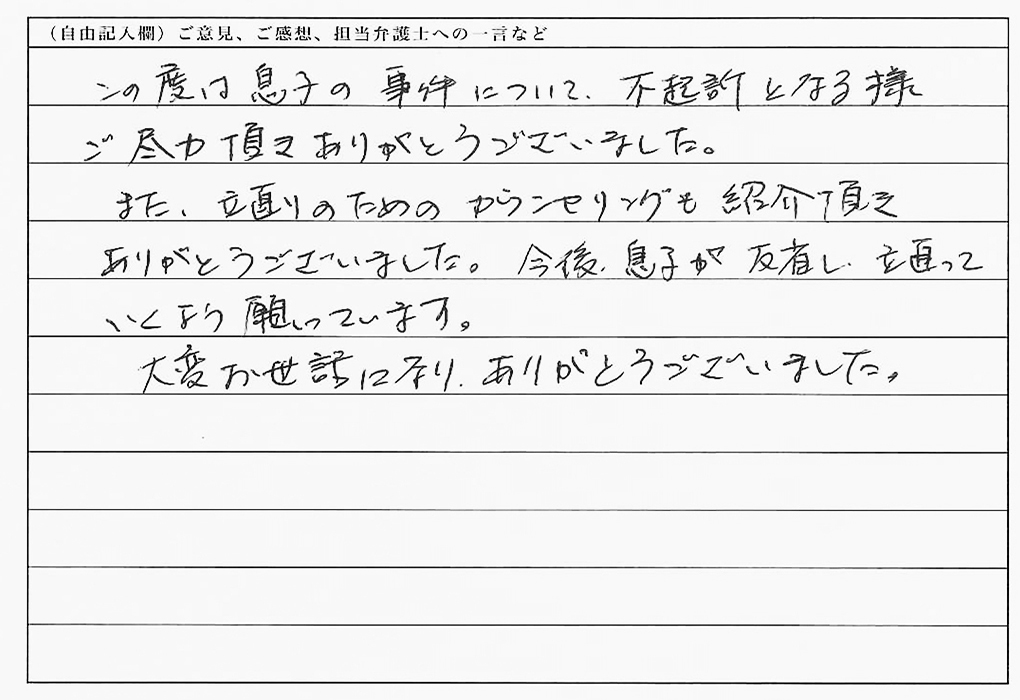 （自由記入欄）ご意見、ご感想、担当弁護士への一言など
この度は息子の事件について、不起訴となる様
ご尽力頂きありがとうございました。
また、立直りのためのカウンセリングも紹介頂き
ありがとうございました。今後、息子が反省し、立直って
いくよう願っています。
大変お世話になり、ありがとうございました。